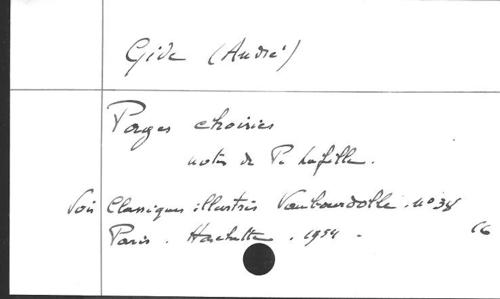 Gide (André)
Pages choisies
notes de P. Lafille.
Voir Classiques illustrés Vaubourdolle. n° 38
Paris. Hachette. 1954. 16